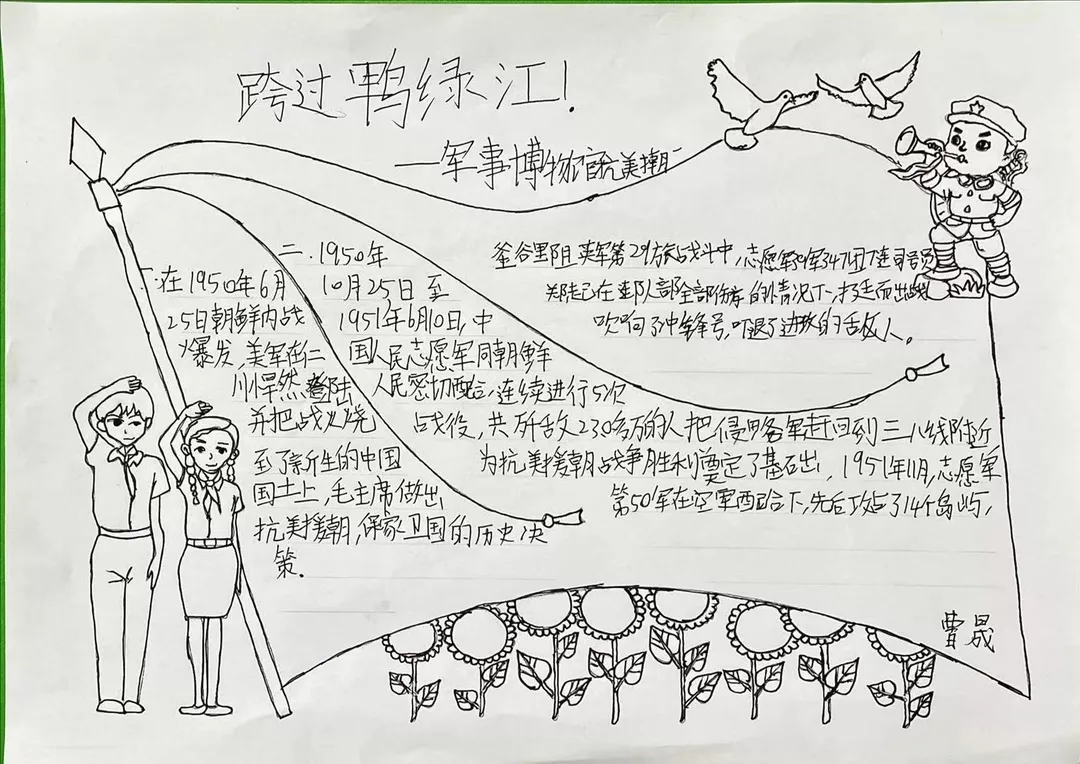 跨过鸭绿江！
——军事博物馆抗美援朝
一.在1950年6月
25日朝鲜内战
爆发，美军在仁
川悍然登陆
并把战火烧
到了新生的中国
国土上，毛主席做出
抗美援朝，保家卫国的历史决
策.
二.1950年
10月25日至
1951年6月10日，中
国人民志愿军同朝鲜
人民密切配合，连续进行5次
战役，共歼敌230多万的人把侵略军赶回到三八线附近
为抗美援朝战争胜利奠定了基础，1951年11月，志愿军
第50军在空军配合下，先后攻占了14个岛屿，
釜谷里阻英军第29旅战斗中，志愿军39军347团7连司号员
郑起在连队干部全部伤亡的情况下，挺身而出
吹响了冲锋号，吓退了进攻的敌人。
曹晟